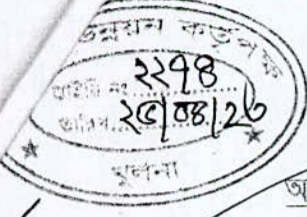 উন্নয়ন কর্তৃপক্ষ
ডাইরি নং ২২৭৪
তারিখ...২৫/০৪/২৩
খুলনা